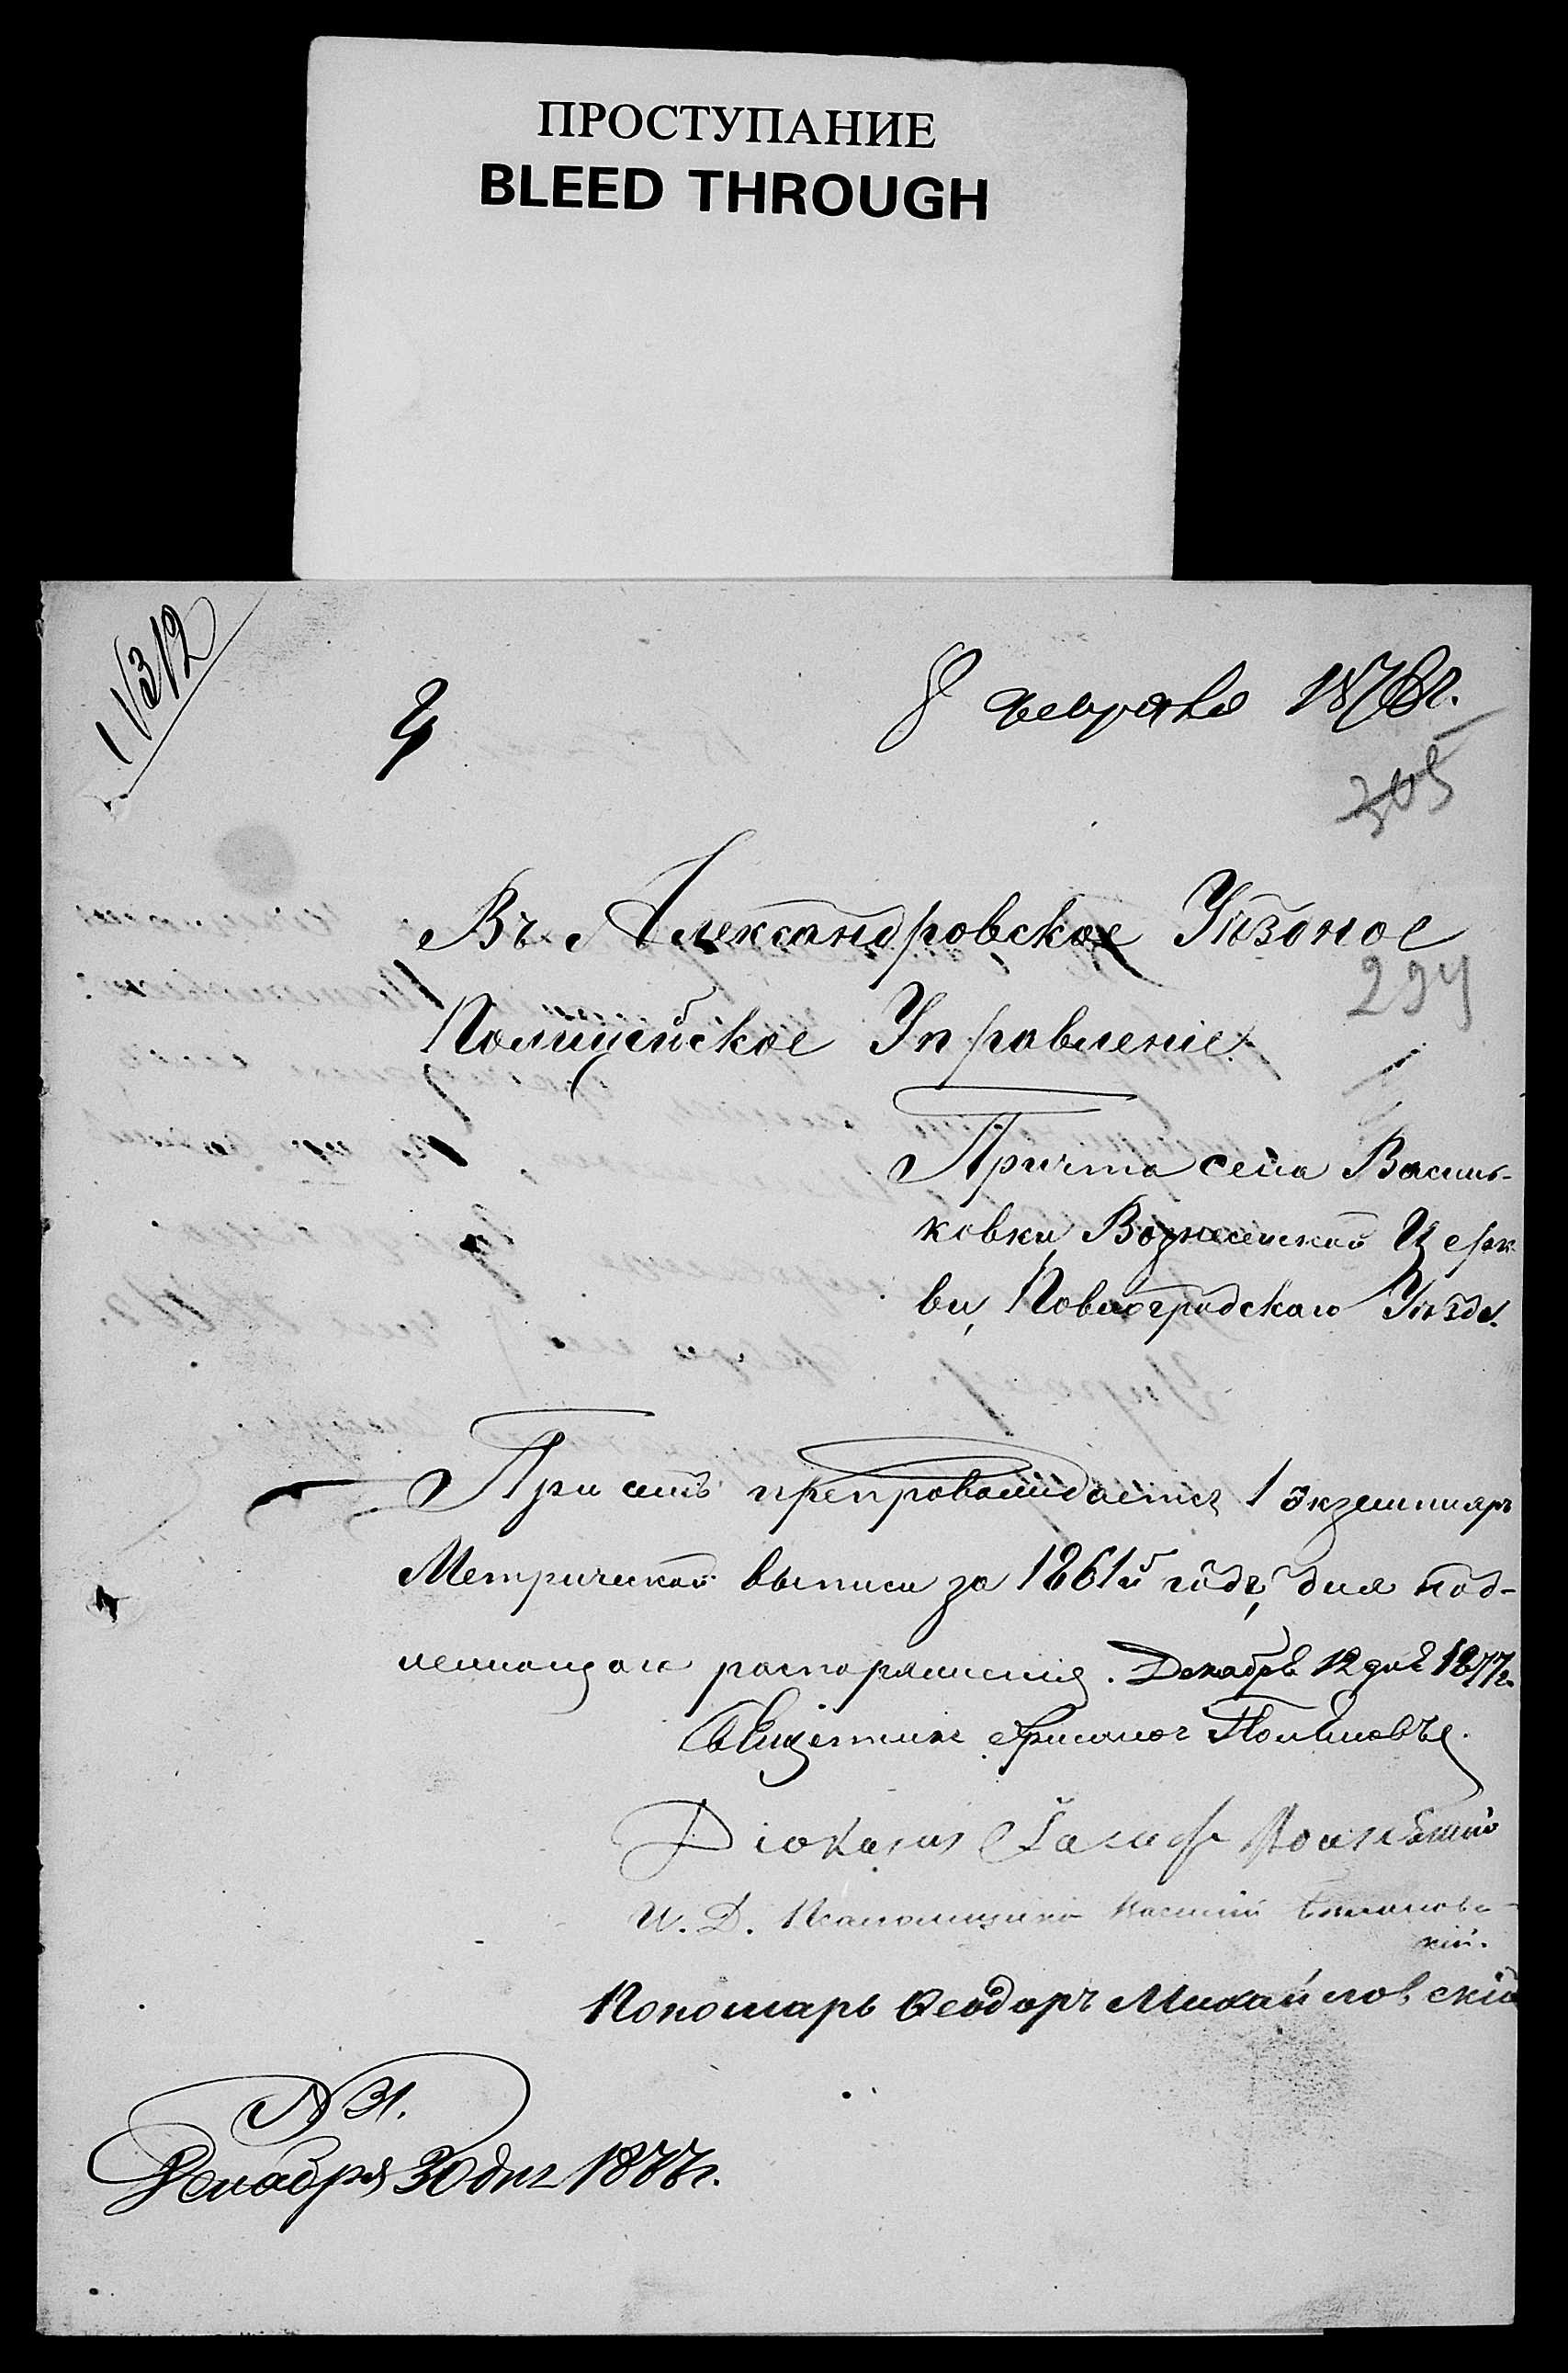 ПРОСТУПАНИЕ
BLEED THROUGH
1/312
8 февраля 1878 г.
305
Въ Александровское Уѣздное
294
Полицейское Управленіе.
Причта села Василь-
ковки, Вознесенской Церк-
ви, Павлоградскаго Уѣзда.
При семъ препровождается 1 экземпляръ
Метрической выписи за 1861й годъ, для над-
лежащаго распоряженія. Декабря 12 дня 1877 г.
Священникъ
Діоконъ
И. Д. Псаломщика
кій.
Пономарь Ѳеодоръ Михайловскій
№ 31.
Декабря 30 дня 1877 г.